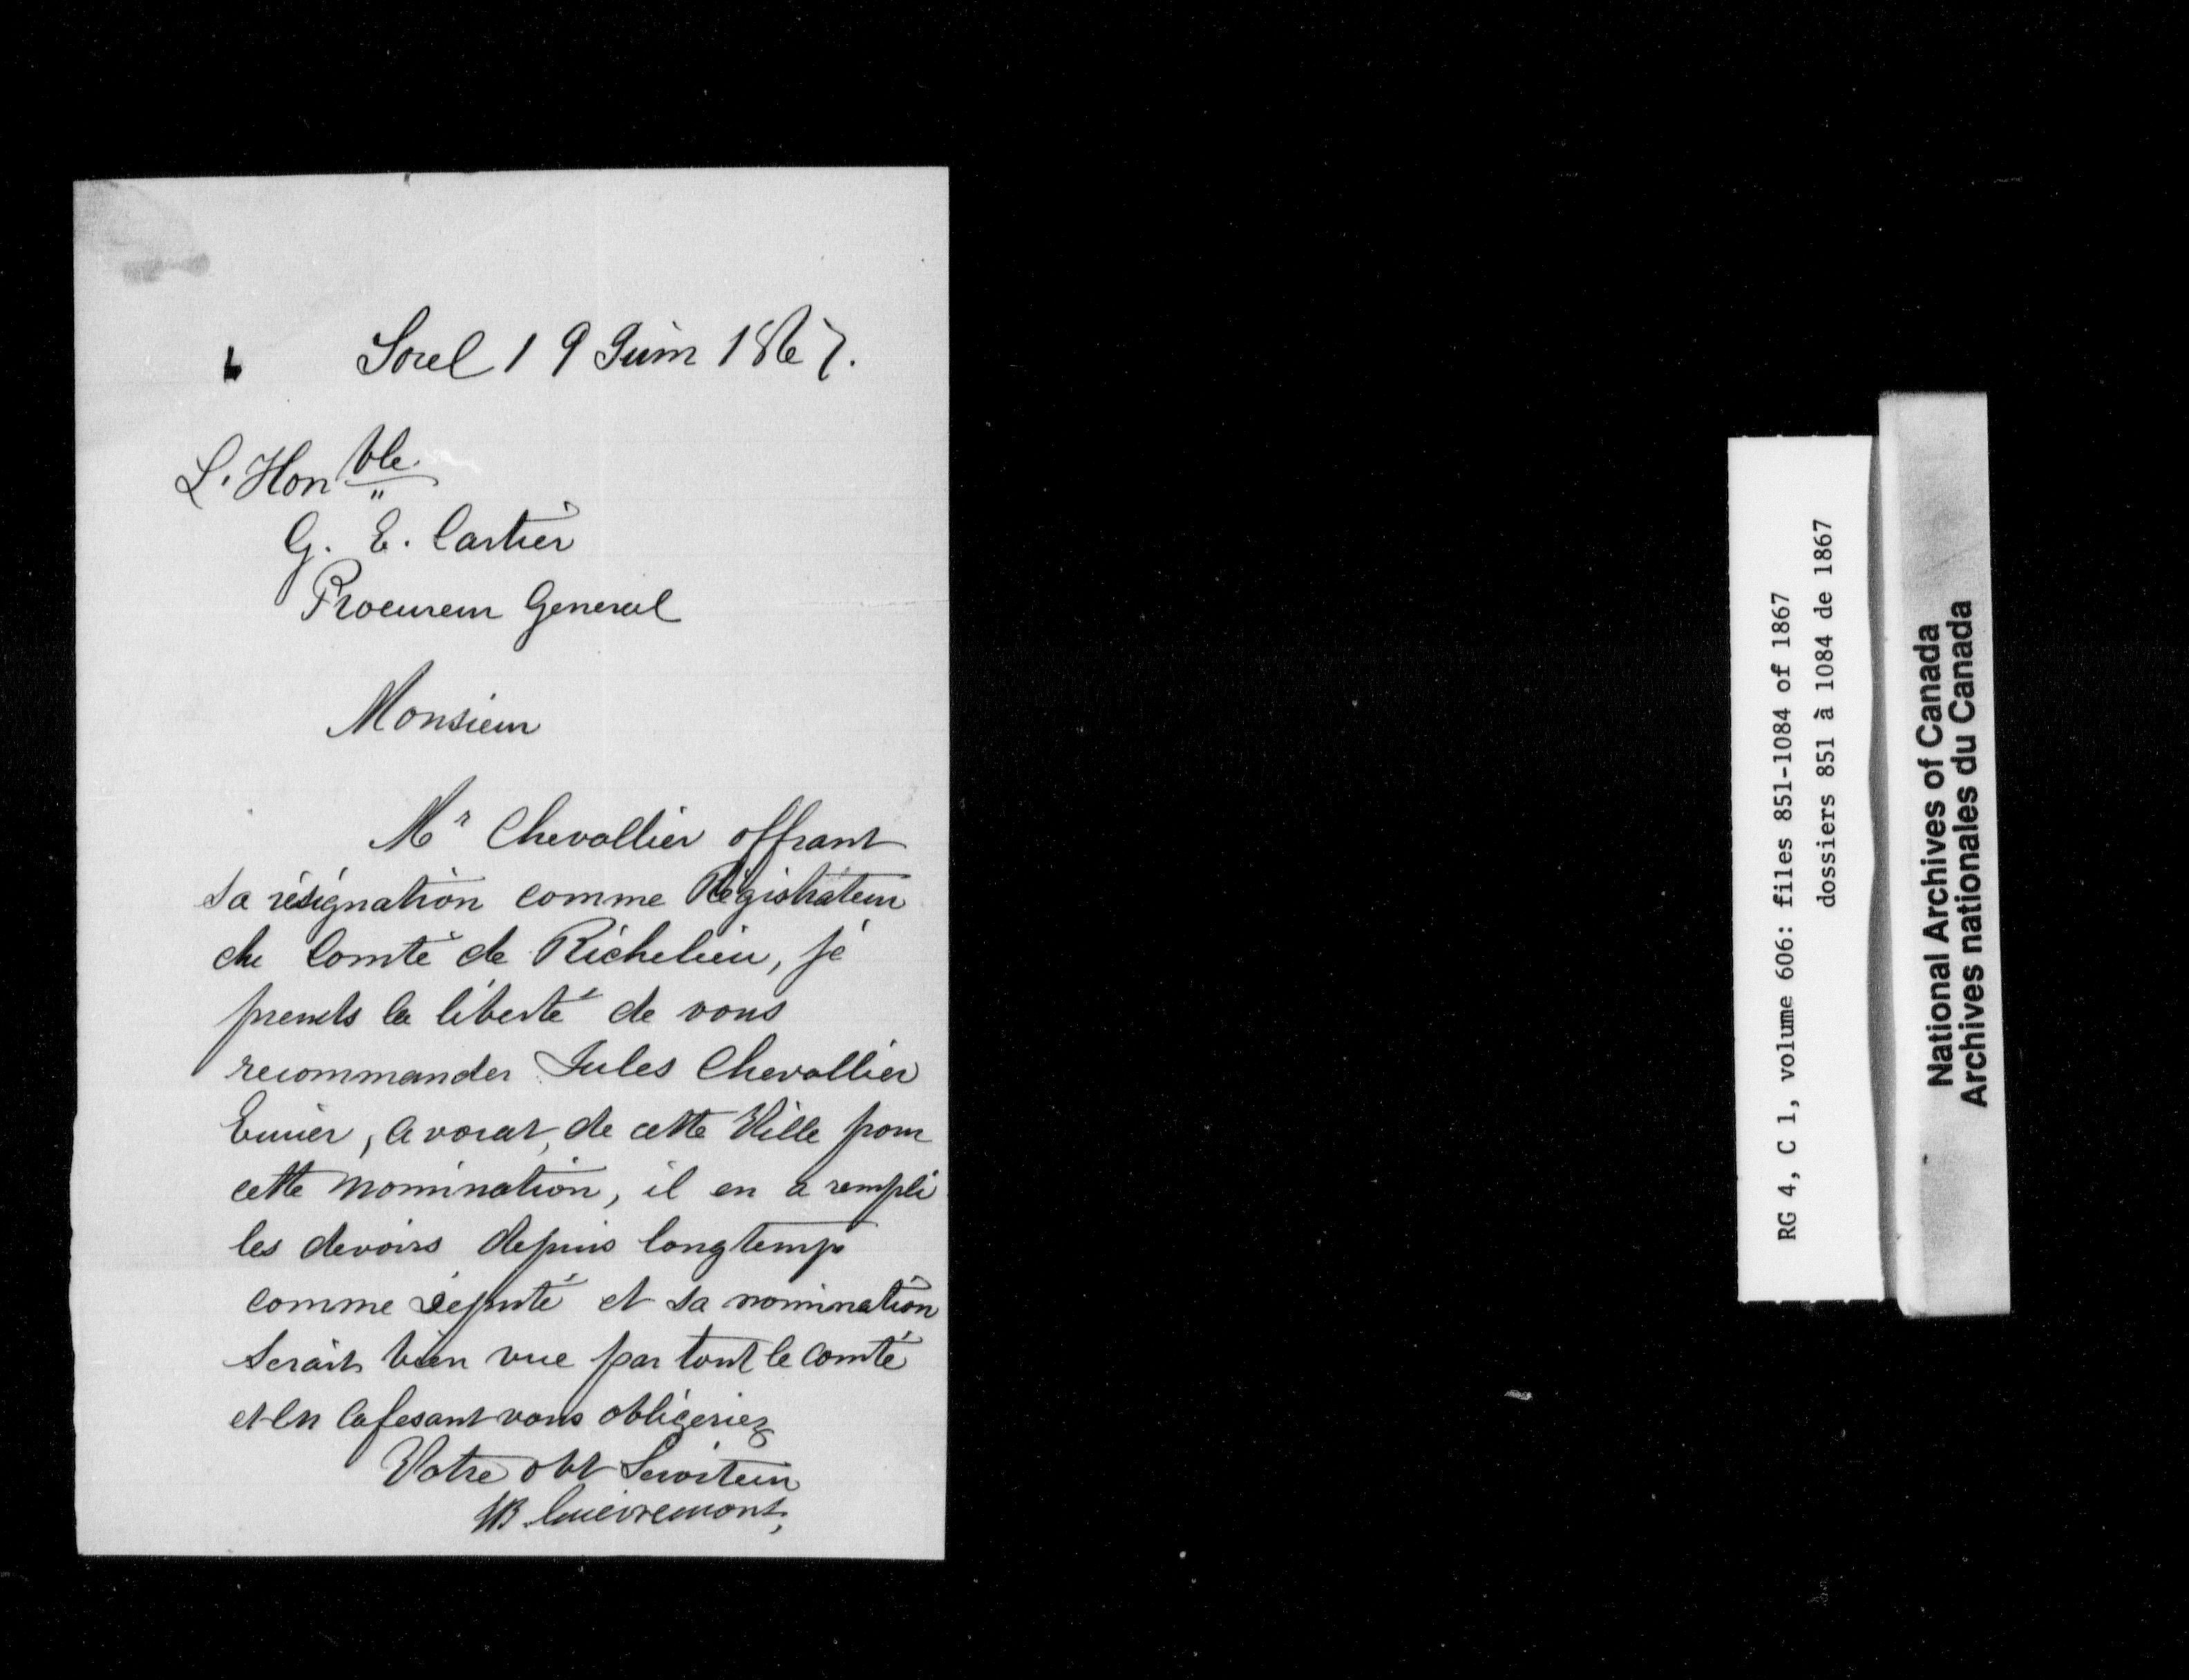 Sorel 19 Juin 1867.
L'Honble.
G. E. Cartier
Procureur General
Monsieur
Mr Chevallier offrant
sa résignation comme Régistrateur
du Comté de Richelieu, je
prends la liberté de vous
recommander Jules Chevallier
Ecuier, avocat, de cette Ville pour
cette nomination, il en a rempli
les devoirs depuis longtemps
comme Député et sa nomination
serait bien vue par tout le comté
et en le fesant vous obligeriez
Votre obt Serviteur
Guèvremont,
RG 4, C 1, volume 606: files 851-1084 of 1867
dossiers 851 à 1084 de 1867
National Archives of Canada
Archives nationales du Canada